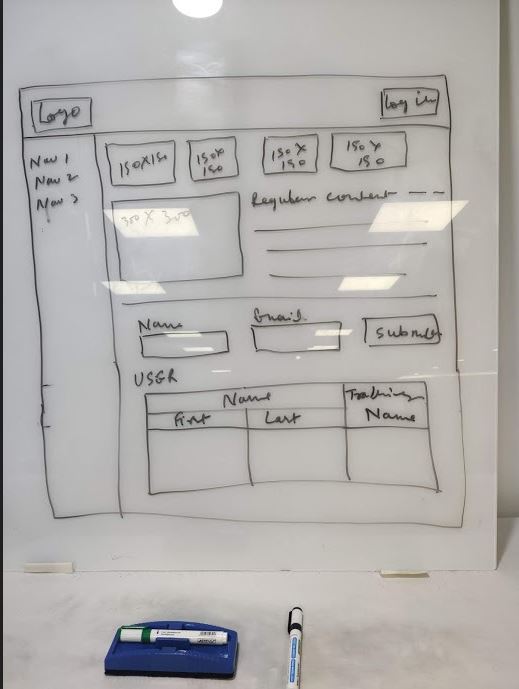 Logo
Log in
Nav 1
Nav 2
Nav 3
150X150
150X
150
150 X
150
150 X
150
300 X 300
Regular content
Name
Email
Submit
USER
Name
First
Last
Name